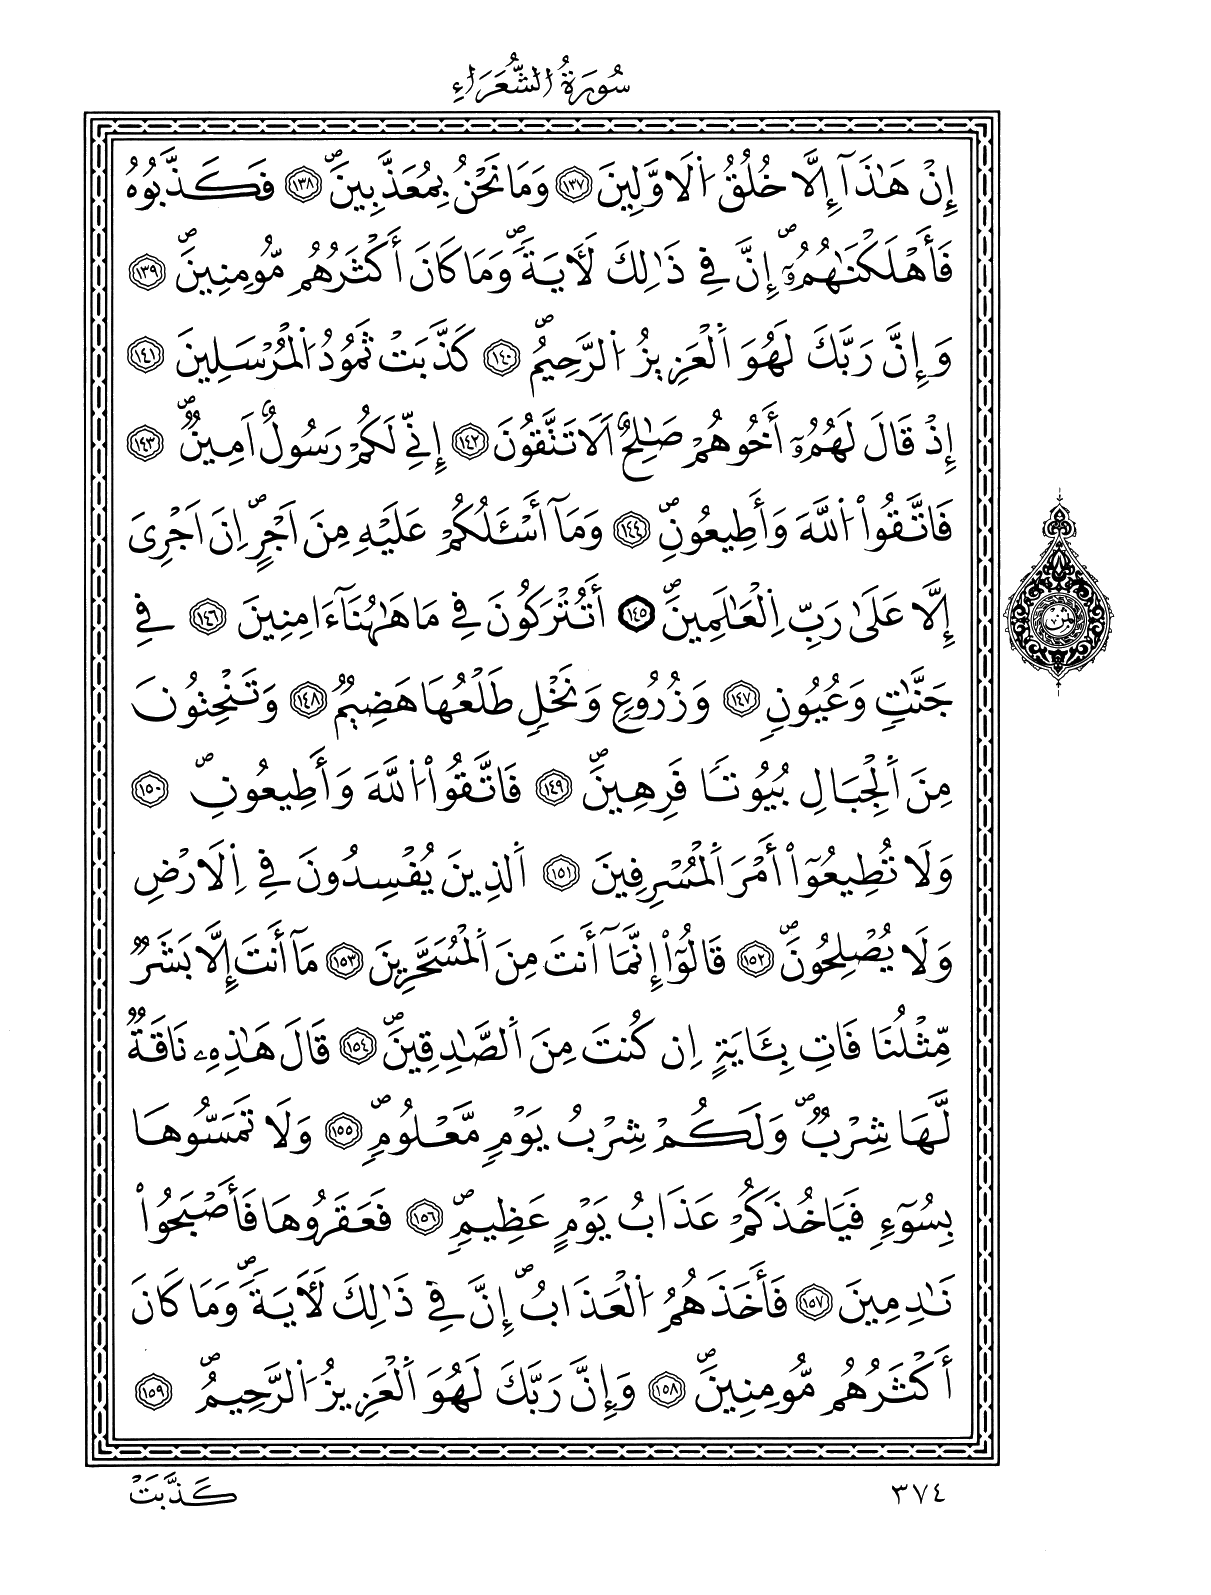 سُورَةُ الشُّعَرَاءِ
إِنْ هَٰذَآ إِلَّا خُلُقُ اُ۬لَاوَّلِينَ ١٣٧ وَمَا نَحْنُ بِمُعَذَّبِينَۖ ١٣٨ فَكَذَّبُوهُ
فَأَهْلَكْنَٰهُمُۥٓۖ إِنَّ فِے ذَٰلِكَ لَأٓيَةٗۖ وَمَا كَانَ أَكْثَرُهُم مُّومِنِينَۖ ١٣٩
وَإِنَّ رَبَّكَ لَهُوَ اَ۬لْعَزِيزُ اُ۬لرَّحِيمُۖ ١٤٠ كَذَّبَتْ ثَمُودُ اُ۬لْمُرْسَلِينَ ١٤١
إِذْ قَالَ لَهُمُۥٓ أَخُوهُمْ صَٰلِحٌ اَلَا تَتَّقُونَ ١٤٢ إِنِّے لَكُمْ رَسُولٌ اَمِينٞۖ ١٤٣
فَاتَّقُواْ اُ۬للَّهَ وَأَطِيعُونِۖ ١٤٤ وَمَآ أَسْـَٔلُكُمْ عَلَيْهِ مِنَ اَجْرٍۖ اِنَ اَجْرِىَ
إِلَّا عَلَىٰ رَبِّ اِ۬لْعَٰلَمِينَۖ ١٤٥ أَتُتْرَكُونَ فِے مَا هَٰهُنَآ ءَامِنِينَ ١٤٦ فِے
جَنَّٰتٖ وَعُيُونٖ ١٤٧ وَزُرُوعٖ وَنَخْلٖ طَلْعُهَا هَضِيمٞ ١٤٨ وَتَنْحِتُونَ
مِنَ اَ۬لْجِبَالِ بُيُوتاٗ فَرِهِينَۖ ١٤٩ فَاتَّقُواْ اُ۬للَّهَ وَأَطِيعُونِۖ ١٥٠
وَلَا تُطِيعُوٓاْ أَمْرَ اَ۬لْمُسْرِفِينَ ١٥١ اَ۬لذِينَ يُفْسِدُونَ فِے اِ۬لَارْضِ
وَلَا يُصْلِحُونَۖ ١٥٢ قَالُوٓاْ إِنَّمَآ أَنتَ مِنَ اَ۬لْمُسَحَّرِينَ ١٥٣ مَآ أَنتَ إِلَّا بَشَرٞ
مِّثْلُنَا فَاتِ بِـَٔايَةٍ اِن كُنتَ مِنَ اَ۬لصَّٰدِقِينَۖ ١٥٤ قَالَ هَٰذِهِۦ نَاقَةٞ
لَّهَا شِرْبٞۖ وَلَكُمْ شِرْبُ يَوْمٖ مَّعْلُومٖۖ ١٥٥ وَلَا تَمَسُّوهَا
بِسُوٓءٖ فَيَاخُذَكُمْ عَذَابُ يَوْمٍ عَظِيمٖۖ ١٥٦ فَعَقَرُوهَا فَأَصْبَحُواْ
نَٰدِمِينَ ١٥٧ فَأَخَذَهُمُ اُ۬لْعَذَابُۖ إِنَّ فِے ذَٰلِكَ لَأٓيَةٗۖ وَمَا كَانَ
أَكْثَرُهُم مُّومِنِينَۖ ١٥٨ وَإِنَّ رَبَّكَ لَهُوَ اَ۬لْعَزِيزُ اُ۬لرَّحِيمُۖ ١٥٩
٣٧٤
كَذَّبَتْ